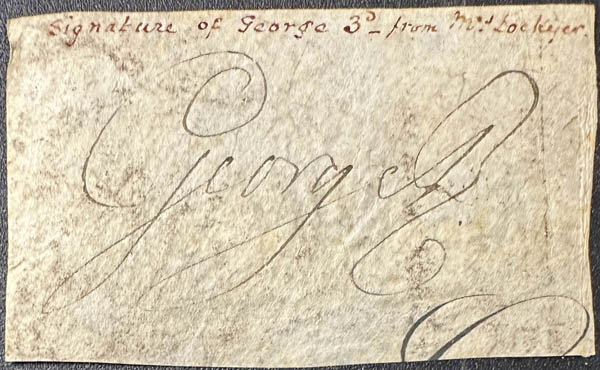 Signature of George 3d- from Mrs Lockyer.
George R